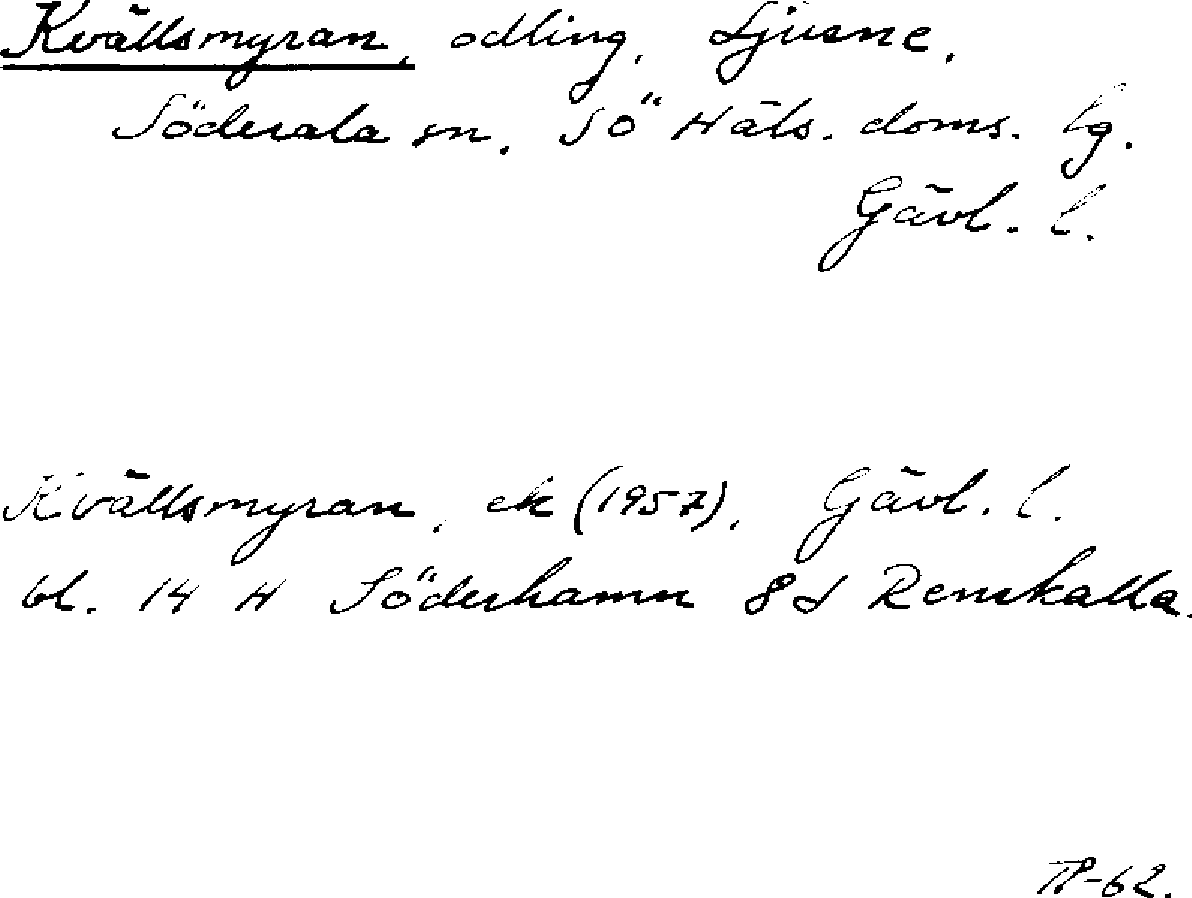 Kvällsmyran, odling, Ljusne,
Söderala sn. Sö Häls. doms. lg.
Gävl. l.
Kvällsmyran, ek (1957), Gävl. l.
bl. 14 H Söderhamn 8d Renskalla.
TP-62.